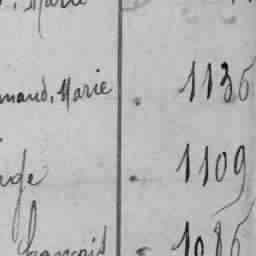 Marie
mand, Marie . 1136
. 1109
François 1086